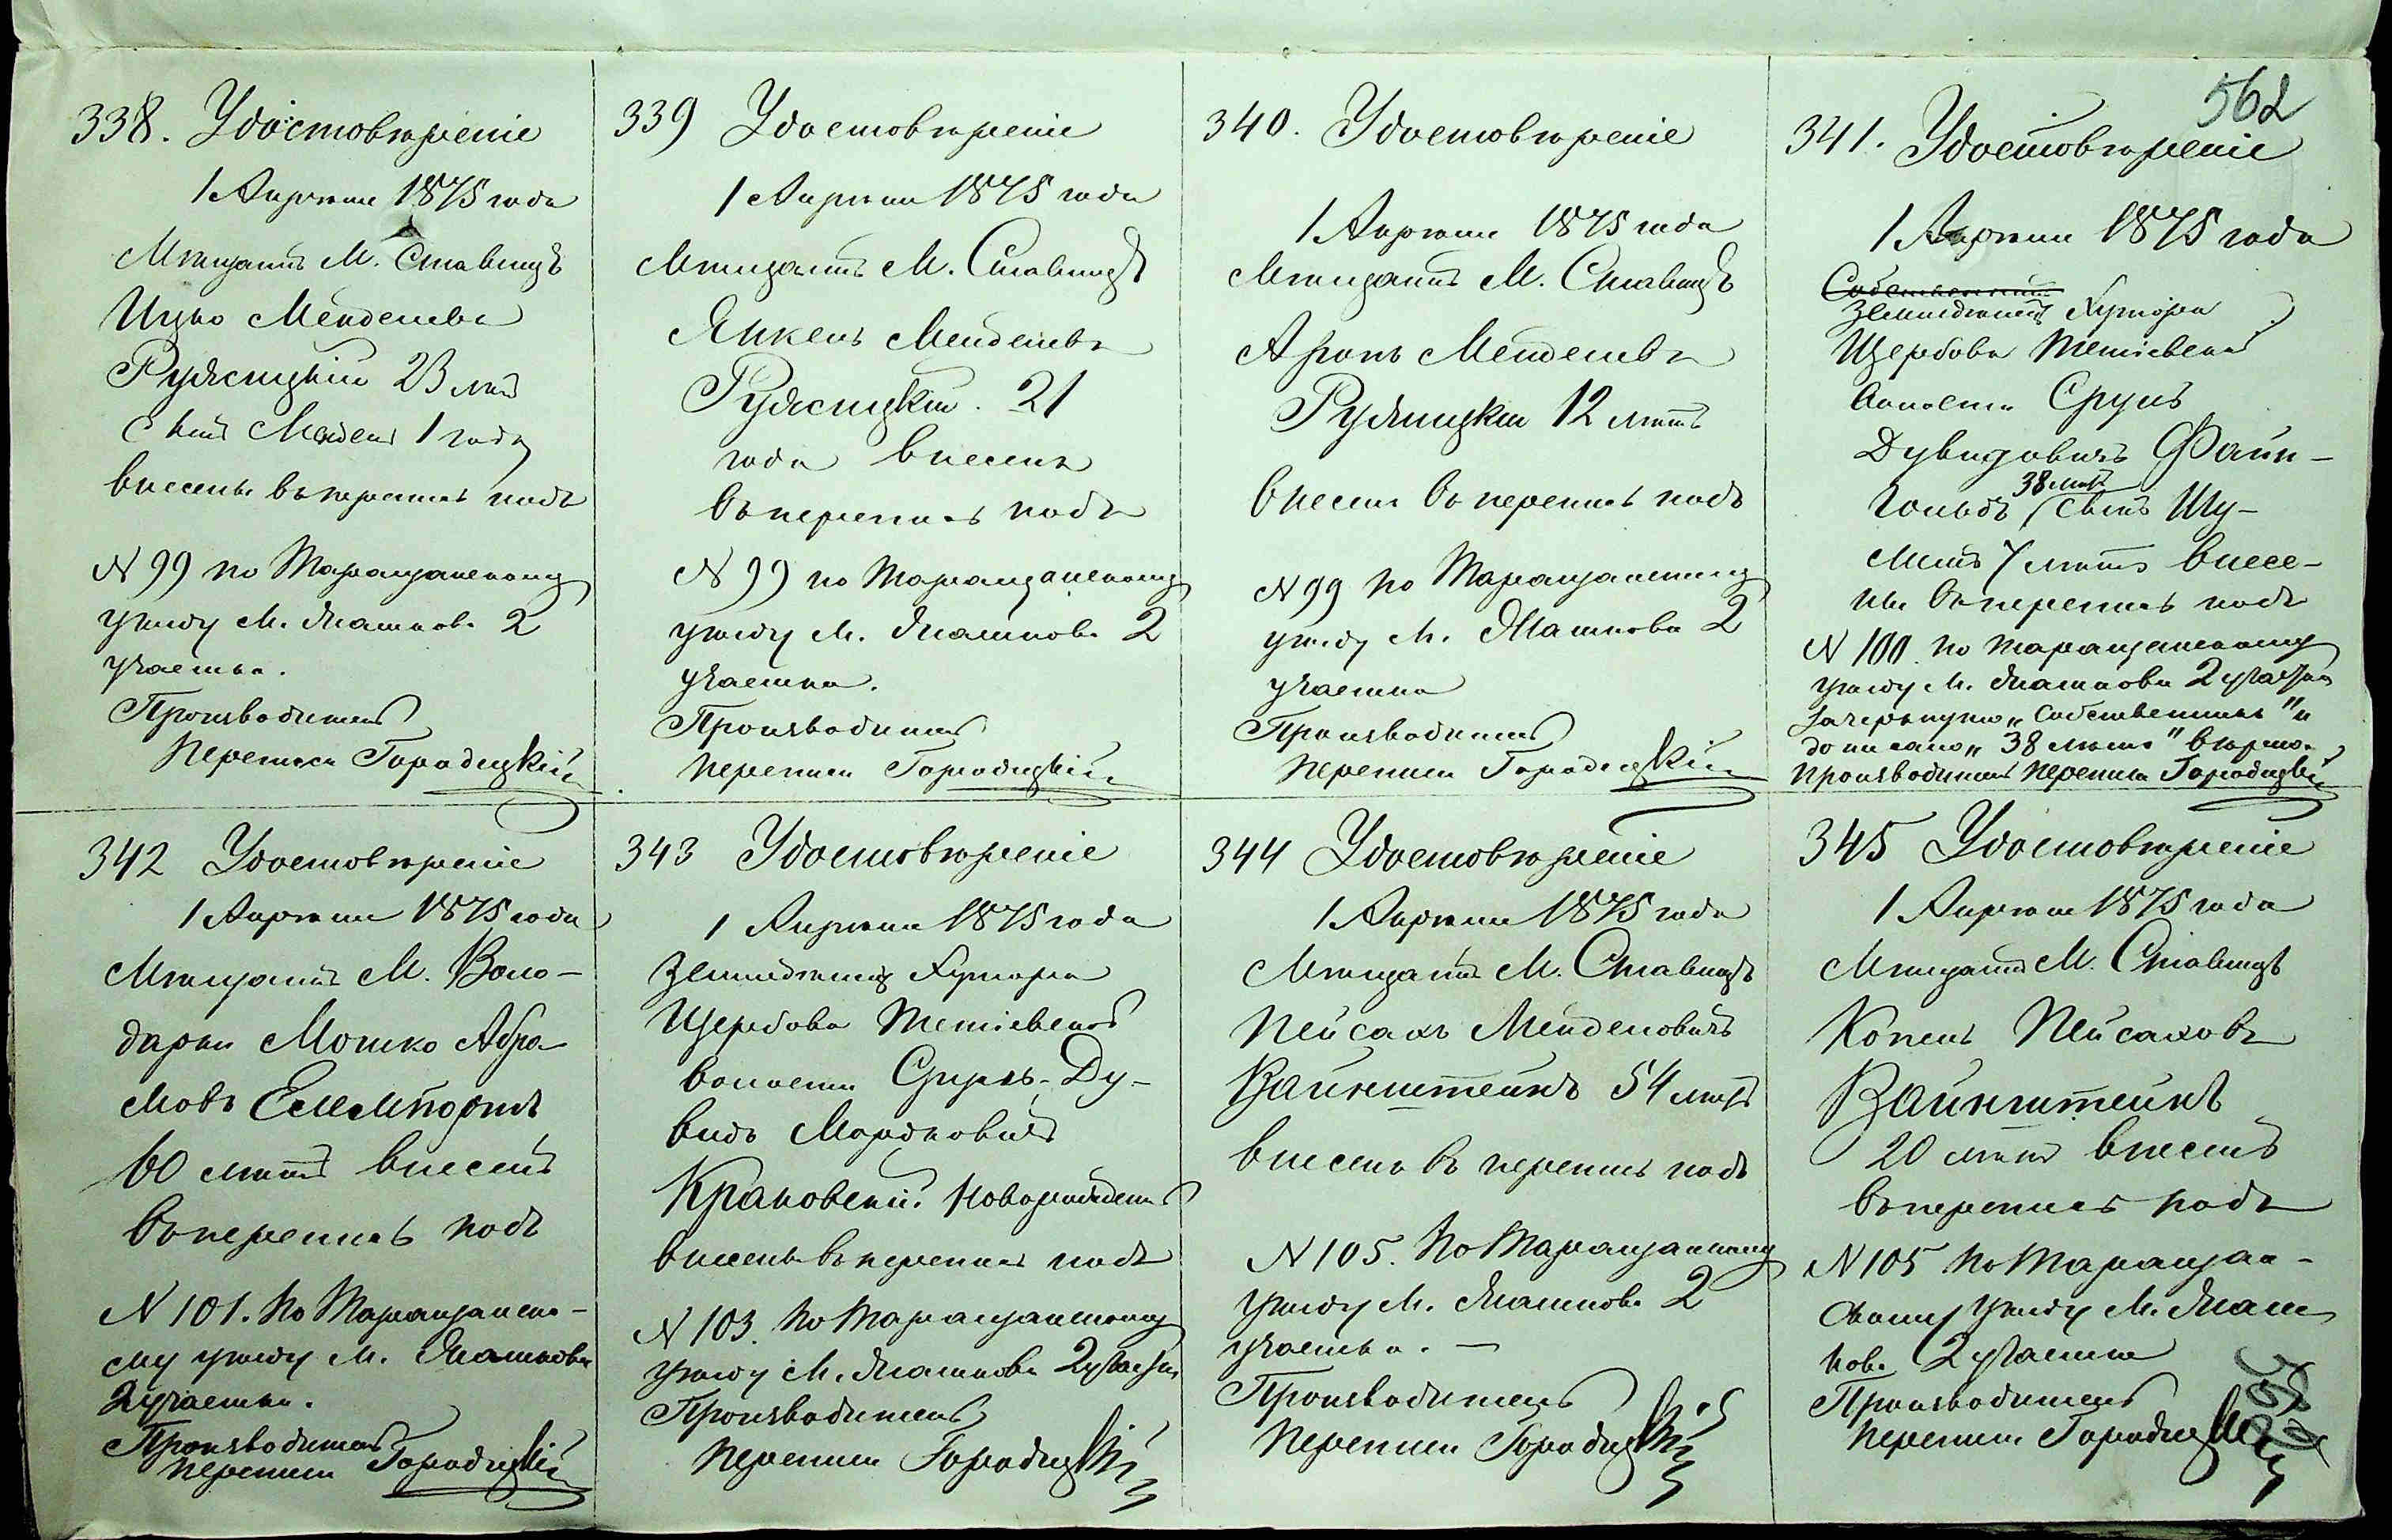 562
338. Удостовѣреніе
1 Апрѣля 1875 года
Мѣщанинъ М. Ставищъ
Ицко Менделевъ
Рудницкій 23 лѣтъ
Сынъ Мендель 1 года
внесены въ перепись подъ
N 99 по Таращанскому
уѣзду М. Пашкова 2
участка.
Производитель
переписи Городицкій
339 Удостовѣреніе
1 Апрѣля 1875 года
Мѣщанинъ М. Ставищъ
Янкель Менделевъ
Рудницкій. 21
года внесенъ
въ перепись подъ
N 99 по Таращанскому
уѣзду М. Пашкова 2
участка.
Производитель
переписи Городицкій
340. Удостовѣреніе
1 Апрѣля 1875 года
Мѣщанинъ М. Ставищъ
Аронъ Менделевъ
Рудницкій 12 лѣтъ
внесенъ въ перепись подъ
N 99 по Таращанскому
уѣзду М. Пашкова 2
участка
Производитель
переписи Городицкій
341. Удостовѣреніе
1 Апрѣля 1875 года
Собственникъ
Земледѣлецъ Хутора
Щербова Тетіевской
волости Сруль
Дувидовичъ Файн-
38 лѣтъ
гольдъ, сынъ Шу-
лимъ 7 лѣтъ внесе-
ны въ перепись подъ
N 100. по Таращанскому
уѣзду М. Пашкова 2 участка
Зачеркнуто „Собственникъ" и
дописано „38 лѣтъ" вѣрно.
Производитель переписи Городицкій
342 Удостовѣреніе
1 Апрѣля 1875 года
Мѣщанинъ М. Воло-
дарки Мошко Абра-
мовъ
60 лѣтъ внесенъ
въ перепись подъ
N 101. по Таращанско-
му уѣзду М. Пашкова
2 участка.
Производитель
переписи Городицкій
343 Удостовѣреніе
1 Апрѣля 1875 года
Земледѣлецъ Хутора
Щербова Тетіевской
волости Сруль-Ду-
видъ Мордковичъ
Краковскій. Новорожденъ
внесенъ въ перепись подъ
N 103. по Таращанскому
уѣзду М. Пашкова 2 участка
Производитель
переписи Городицкій
344 Удостовѣреніе
1 Апрѣля 1875 года
Мѣщанинъ М. Ставищъ
Пейсахъ Менделовичъ
Вайнштейнъ 54 лѣтъ
внесенъ въ перепись подъ
N 105. по Таращанскому
уѣзду М. Пашкова 2
участка. —
Производитель
переписи Городицкій
345 Удостовѣреніе
1 Апрѣля 1875 года
Мѣщанинъ М. Ставищъ
Копель Пейсаховъ
Вайнштейнъ
20 лѣтъ внесенъ
въ перепись подъ
N 105 по Таращан-
скому уѣзду М. Паш
кова 2 участка
Производитель
переписи Городицкій